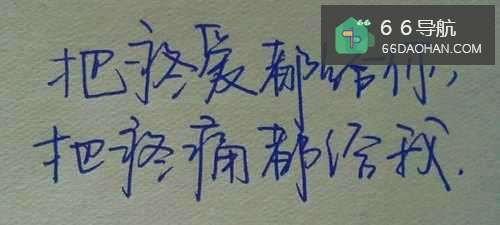 66导航
66DAOHAN.COM
把疼爱都给你，
把疼痛都给我.